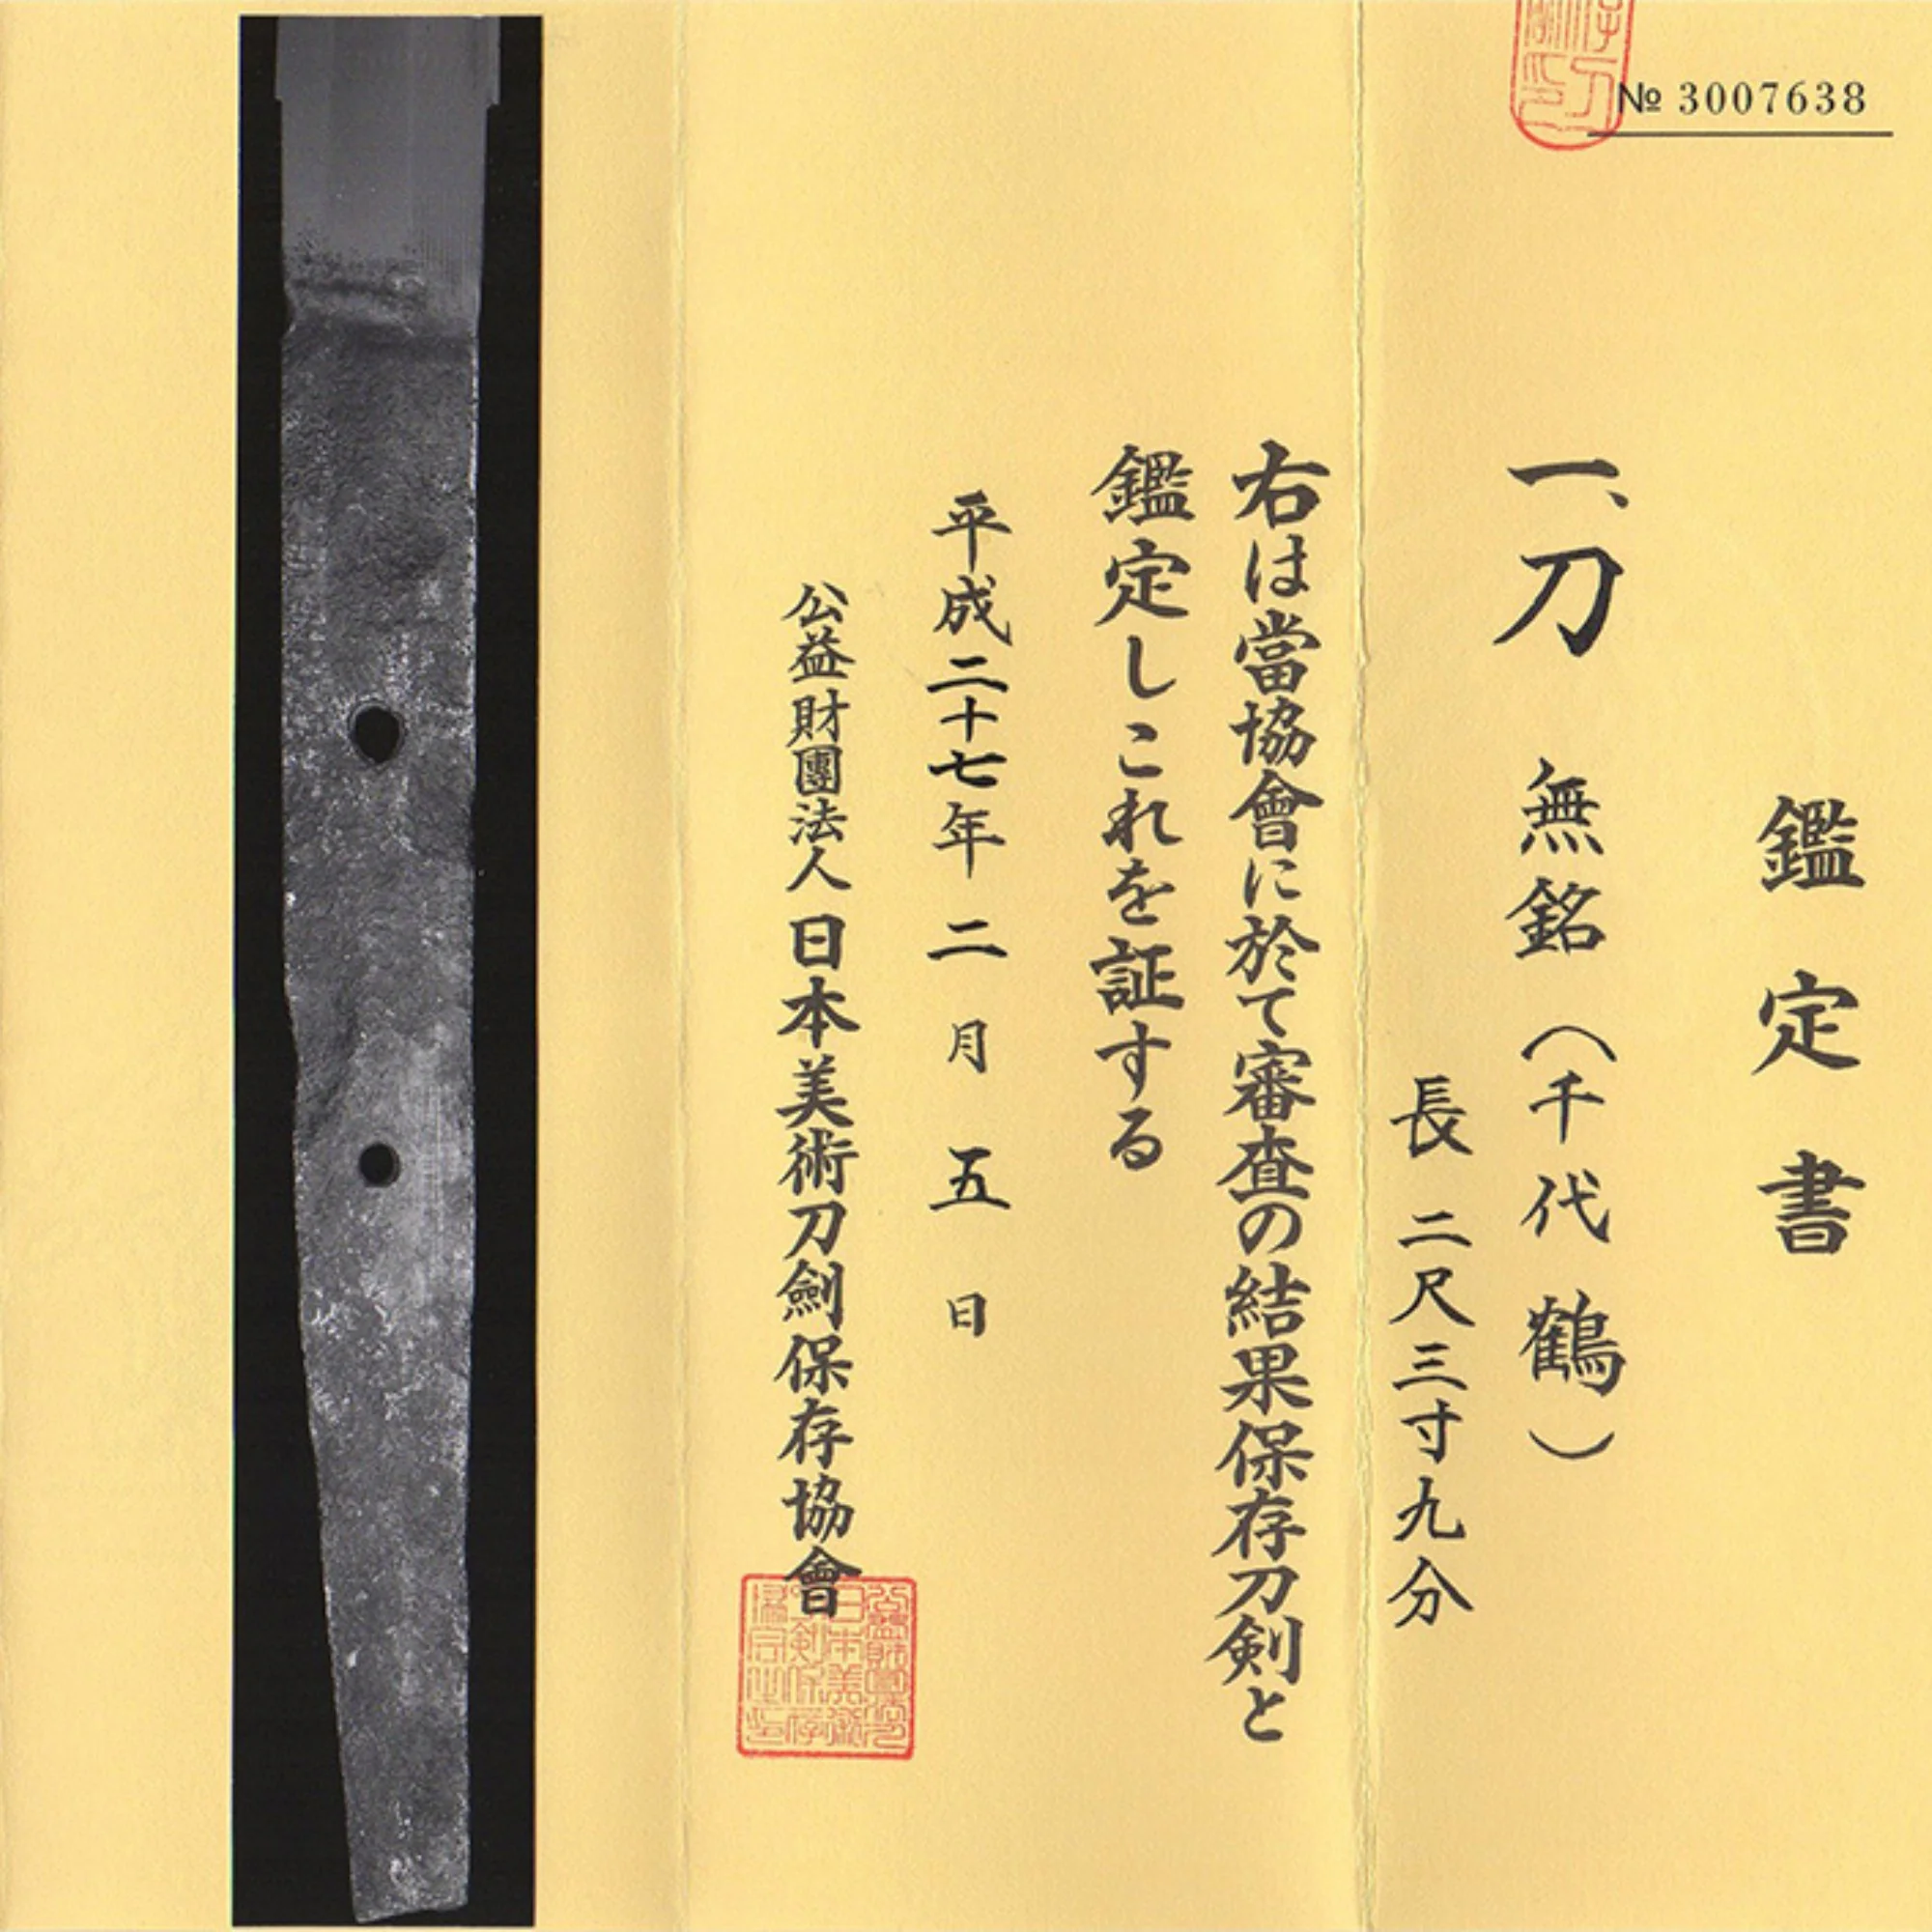 № 3007638
鑑定書
一、刀 無銘(千代鶴)
長 二尺三寸九分
右は當協會に於て審査の結果保存刀剣と
鑑定しこれを証する
平成二十七年二月五日
公益財團法人日本美術刀劍保存協會